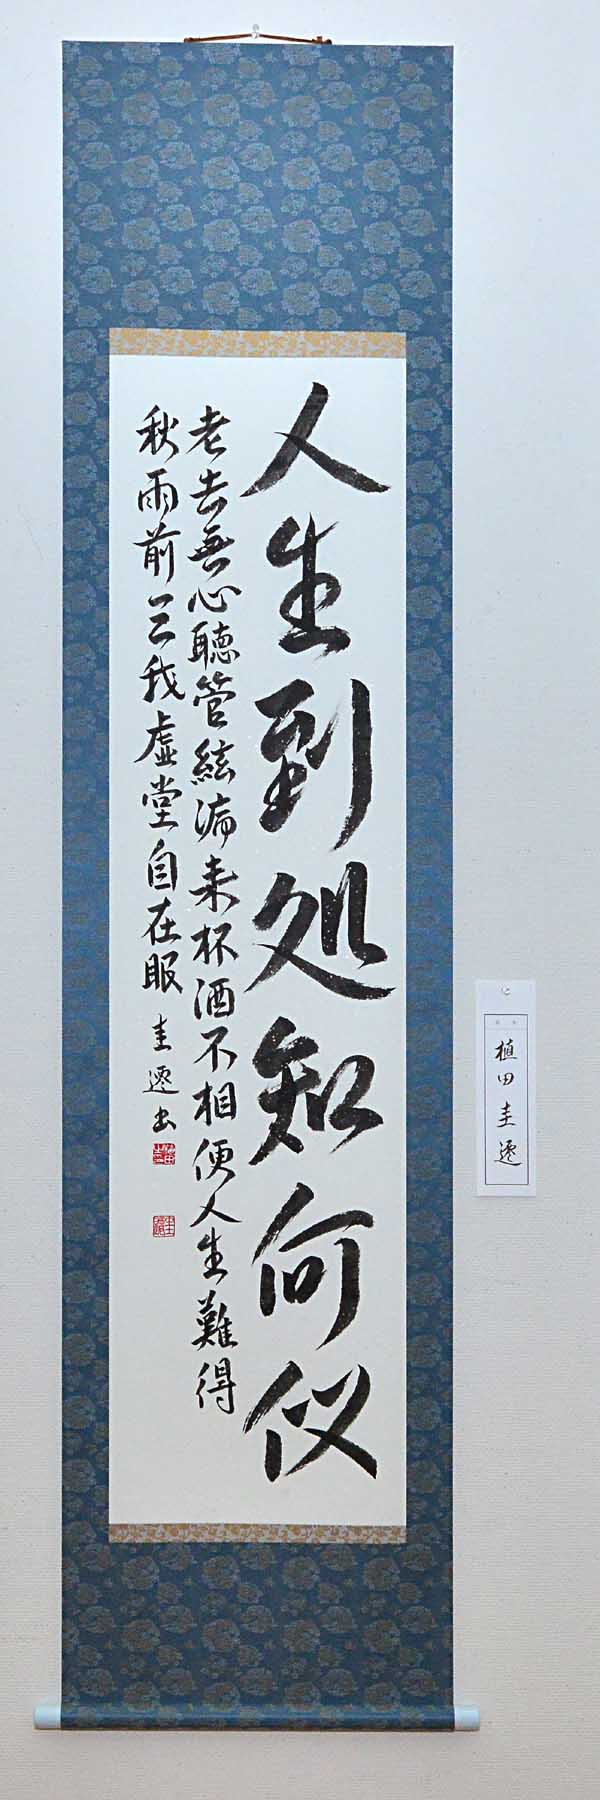 人生到処知何似
老去無心聴管絃病来杯酒不相便人生難得
秋雨前三我虚堂自在眠 圭遷書
植田圭遷